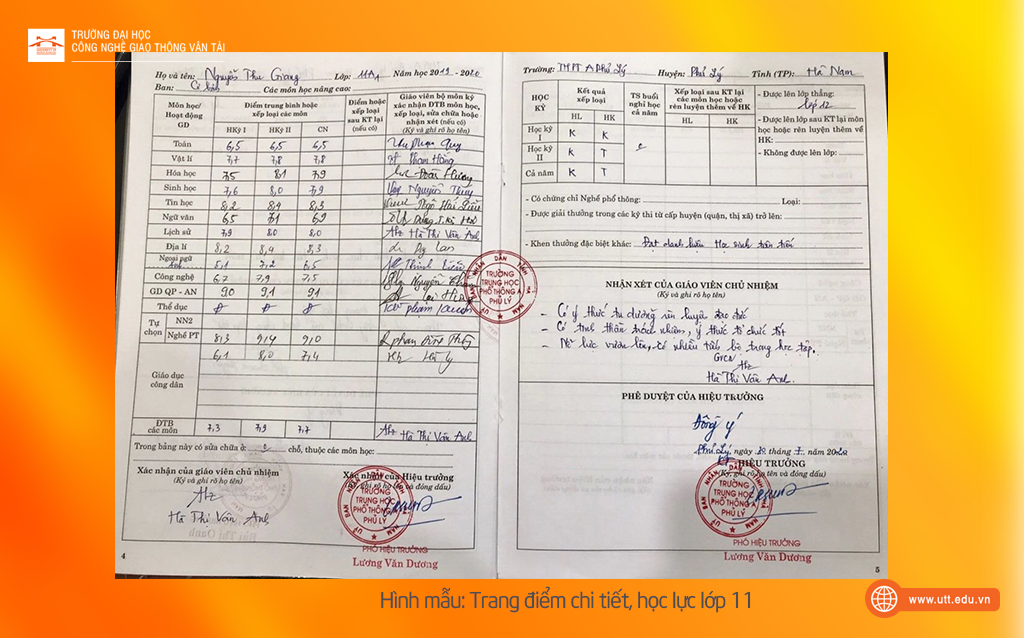 TRƯỜNG ĐẠI HỌC
CÔNG NGHỆ GIAO THÔNG VẬN TẢI
Họ và tên: Nguyễn Thu Giang Lớp: 11A1 Năm học 2019 - 2020
Ban: Cơ bản Các môn học nâng cao:
Môn học/ Hoạt động GD
Điểm trung bình hoặc xếp loại các môn
HKỳ I HKỳ II CN
Điểm hoặc xếp loại sau KT lại (nếu có)
Giáo viên bộ môn ký xác nhận ĐTB môn học, xếp loại, sửa chữa hoặc nhận xét (nếu có)
(Ký và ghi rõ họ tên)
Toán 6,5 6,5 6,5
Vật lí 7,7 7,8 7,8
Hóa học 7,5 8,1 7,9
Sinh học 7,6 8,0 7,9 Nguyễn Thúy
Tin học 8,2 8,4 8,3
Ngữ văn 6,5 7,1 6,9
Lịch sử 7,9 8,0 8,0 Hà Thị Vân Anh
Địa lí 8,2 8,4 8,3
Ngoại ngữ 5,1 7,2 6,5
Công nghệ 6,7 7,9 7,5
GD QP - AN 9,0 9,1 9,1
Thể dục Đ Đ Đ
Tự chọn
NN2
Nghề PT 8,3 9,4 9,0
Giáo dục công dân 6,1 8,0 7,4
ĐTB các môn 7,3 7,9 7,7 Hà Thị Vân Anh
Trong bảng này có sửa chữa ở: 0 chỗ, thuộc các môn học:
Xác nhận của giáo viên chủ nhiệm
(Ký và ghi rõ họ tên)
Hà Thị Vân Anh
Xác nhận của Hiệu trưởng
(Ký, ghi rõ họ tên và đóng dấu)
TRƯỜNG
TRUNG HỌC
PHỔ THÔNG A
PHỦ LÝ
PHÓ HIỆU TRƯỞNG
Lương Văn Dương
4
Trường: THPT A Phủ Lý Huyện: Phủ Lý Tỉnh (TP): Hà Nam
HỌC KỲ
Kết quả xếp loại
HL HK
TS buổi nghỉ học cả năm
Xếp loại sau KT lại các môn học hoặc rèn luyện thêm về HK
HL HK
Học kỳ I K K
Học kỳ II K T
Cả năm K T
- Được lên lớp thẳng:
lớp 12
- Được lên lớp sau KT lại môn học hoặc rèn luyện thêm về HK:
- Không được lên lớp:
- Có chứng chỉ Nghề phổ thông: Loại:
- Được giải thưởng trong các kỳ thi từ cấp huyện (quận, thị xã) trở lên:
- Khen thưởng đặc biệt khác: Đạt danh hiệu Học sinh tiên tiến
TRƯỜNG
TRUNG HỌC
PHỔ THÔNG A
PHỦ LÝ
NHẬN XÉT CỦA GIÁO VIÊN CHỦ NHIỆM
(Ký và ghi rõ họ tên)
- Có ý thức tu dưỡng rèn luyện đạo đức
- Có tinh thần trách nhiệm, ý thức tổ chức tốt
- Nỗ lực vươn lên, có nhiều tiến bộ trong học tập.
GVCN
Hà Thị Vân Anh.
PHÊ DUYỆT CỦA HIỆU TRƯỞNG
Đồng ý
Phủ Lý, ngày 10 tháng 7 năm 2020
HIỆU TRƯỞNG
(Ký, ghi rõ họ tên và đóng dấu)
TRƯỜNG
TRUNG HỌC
PHỔ THÔNG A
PHỦ LÝ
PHÓ HIỆU TRƯỞNG
Lương Văn Dương
5
Hình mẫu: Trang điểm chi tiết, học lực lớp 11
www.utt.edu.vn